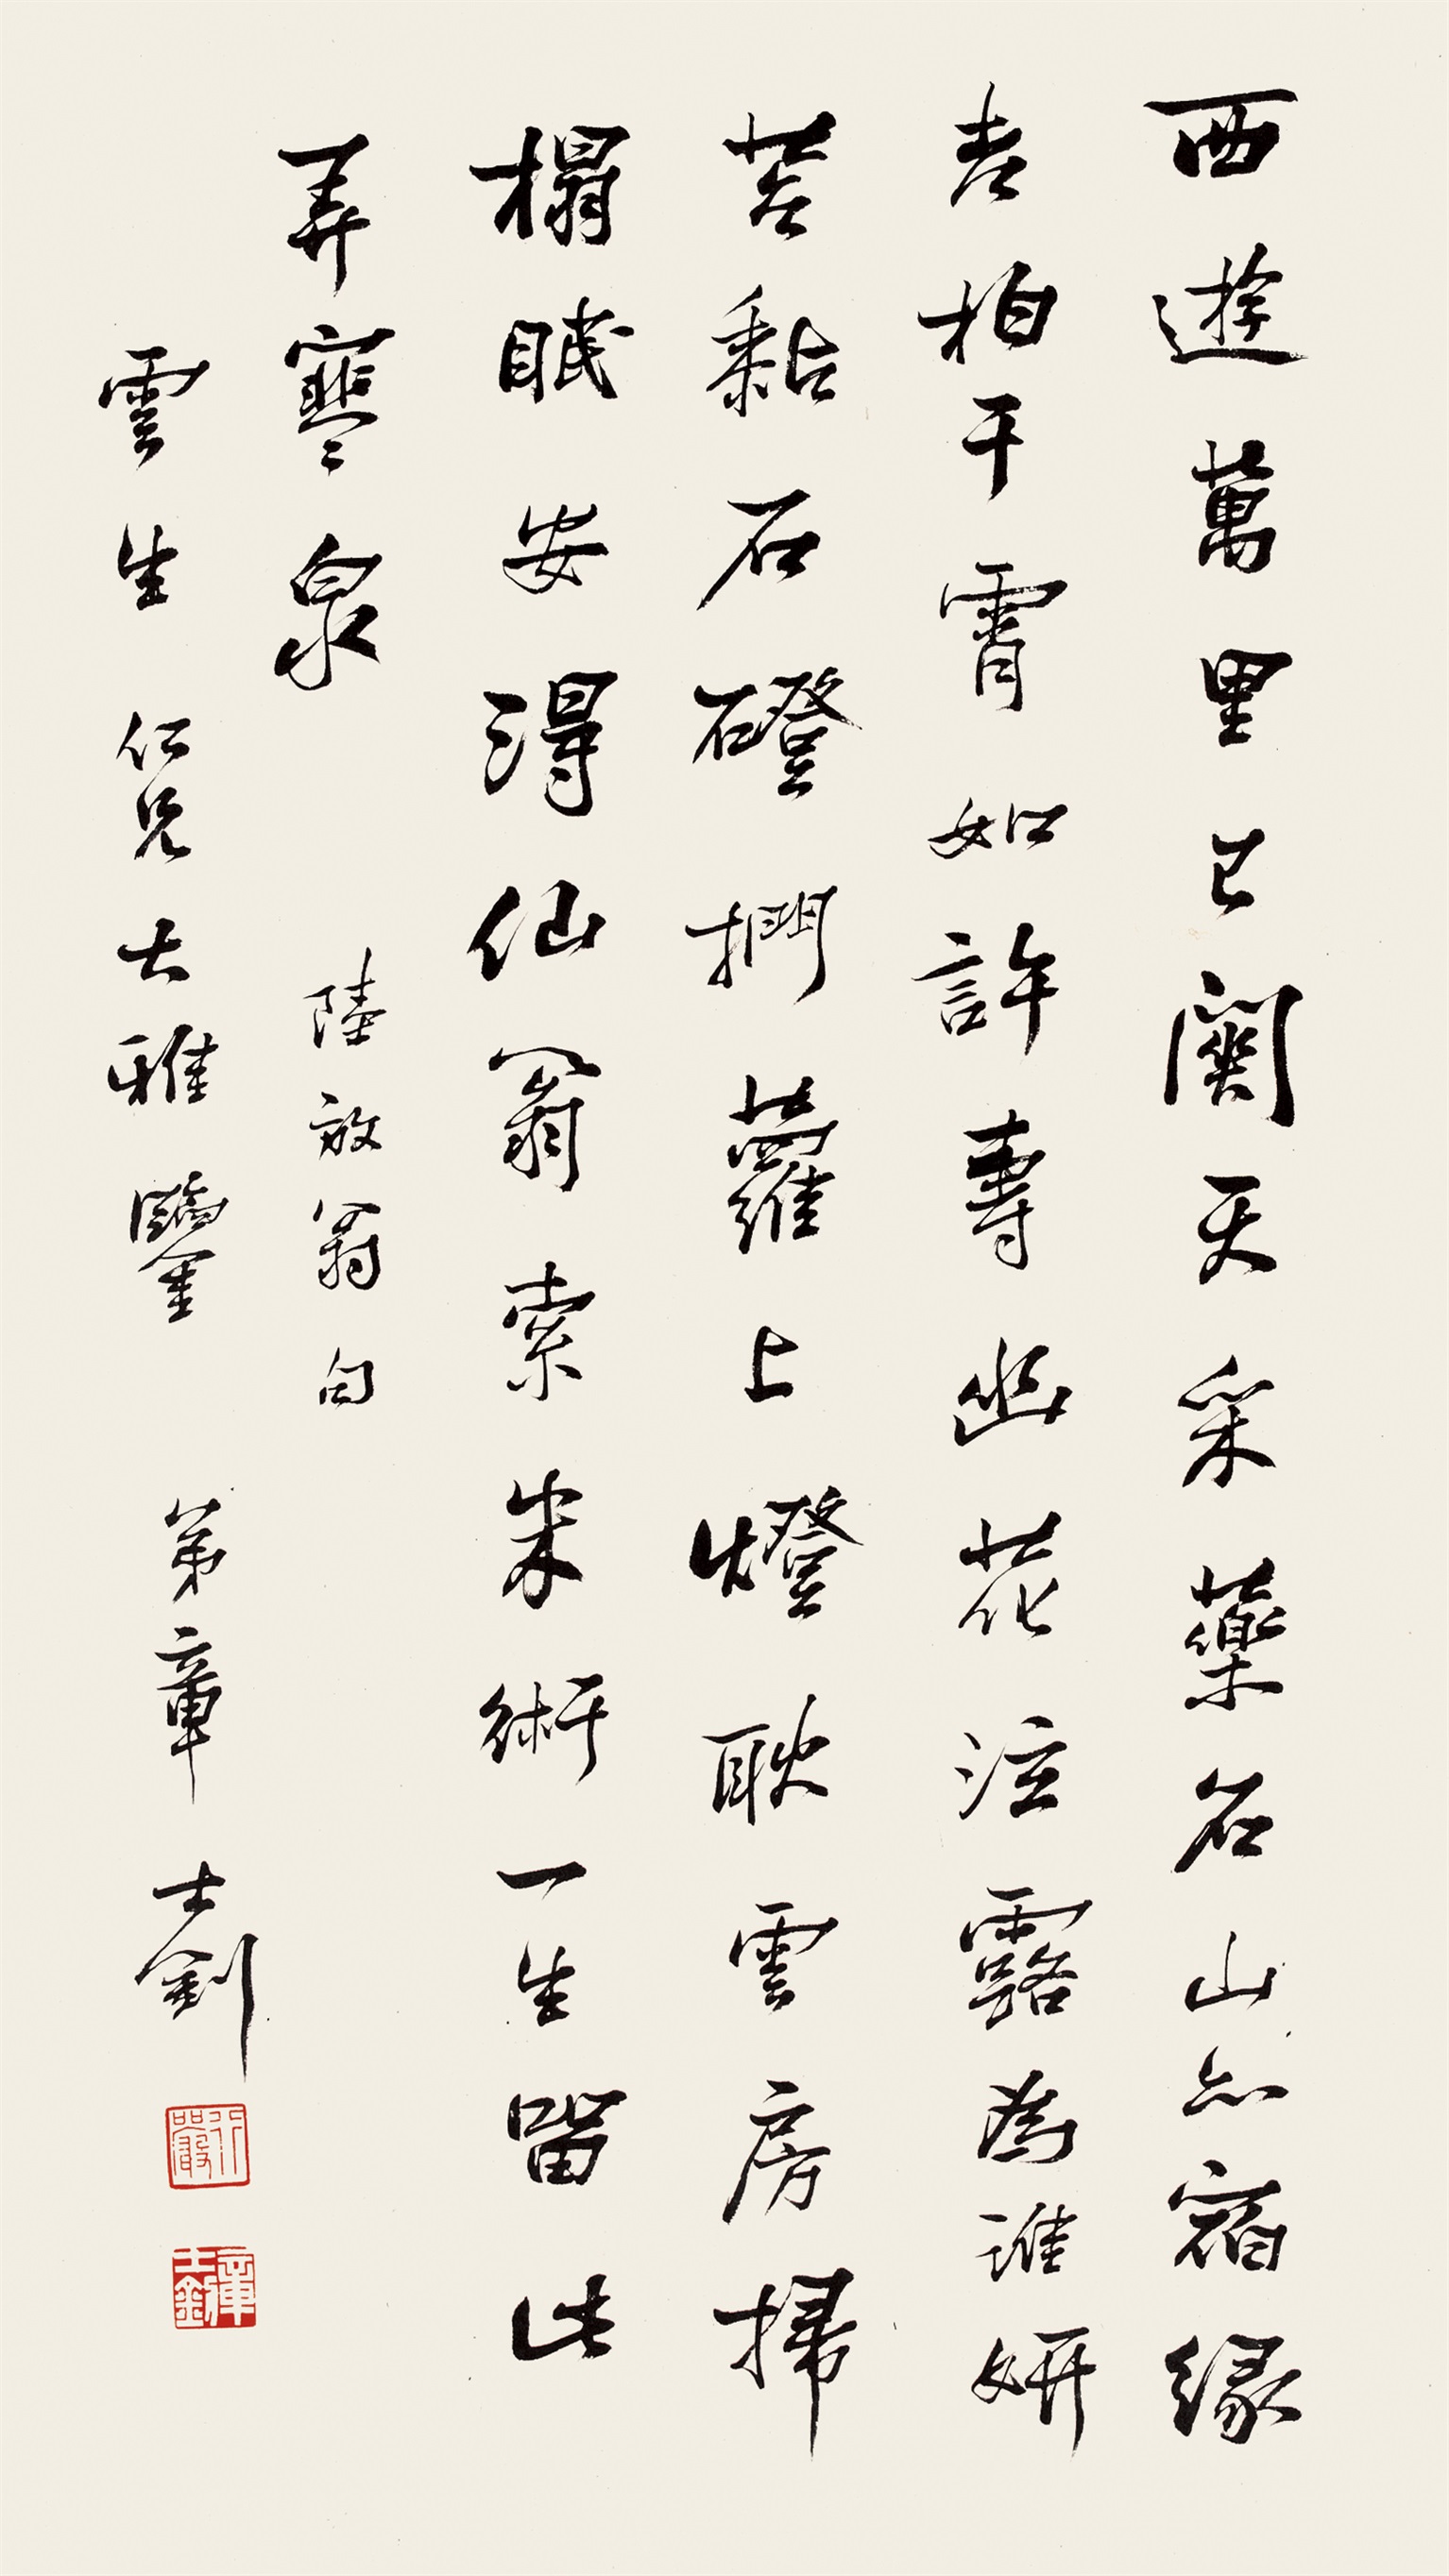 西遊萬里已關天采藥名山亦宿緣
老柏干霄如許壽幽花泣露為誰妍
苔黏石磴捫蘿上燈耿雲房掃
榻眠安得仙翁索米術一生留此
弄寒泉 陸放翁句
雲生仁兄大雅鑒 弟章士釗
行嚴
章士釗